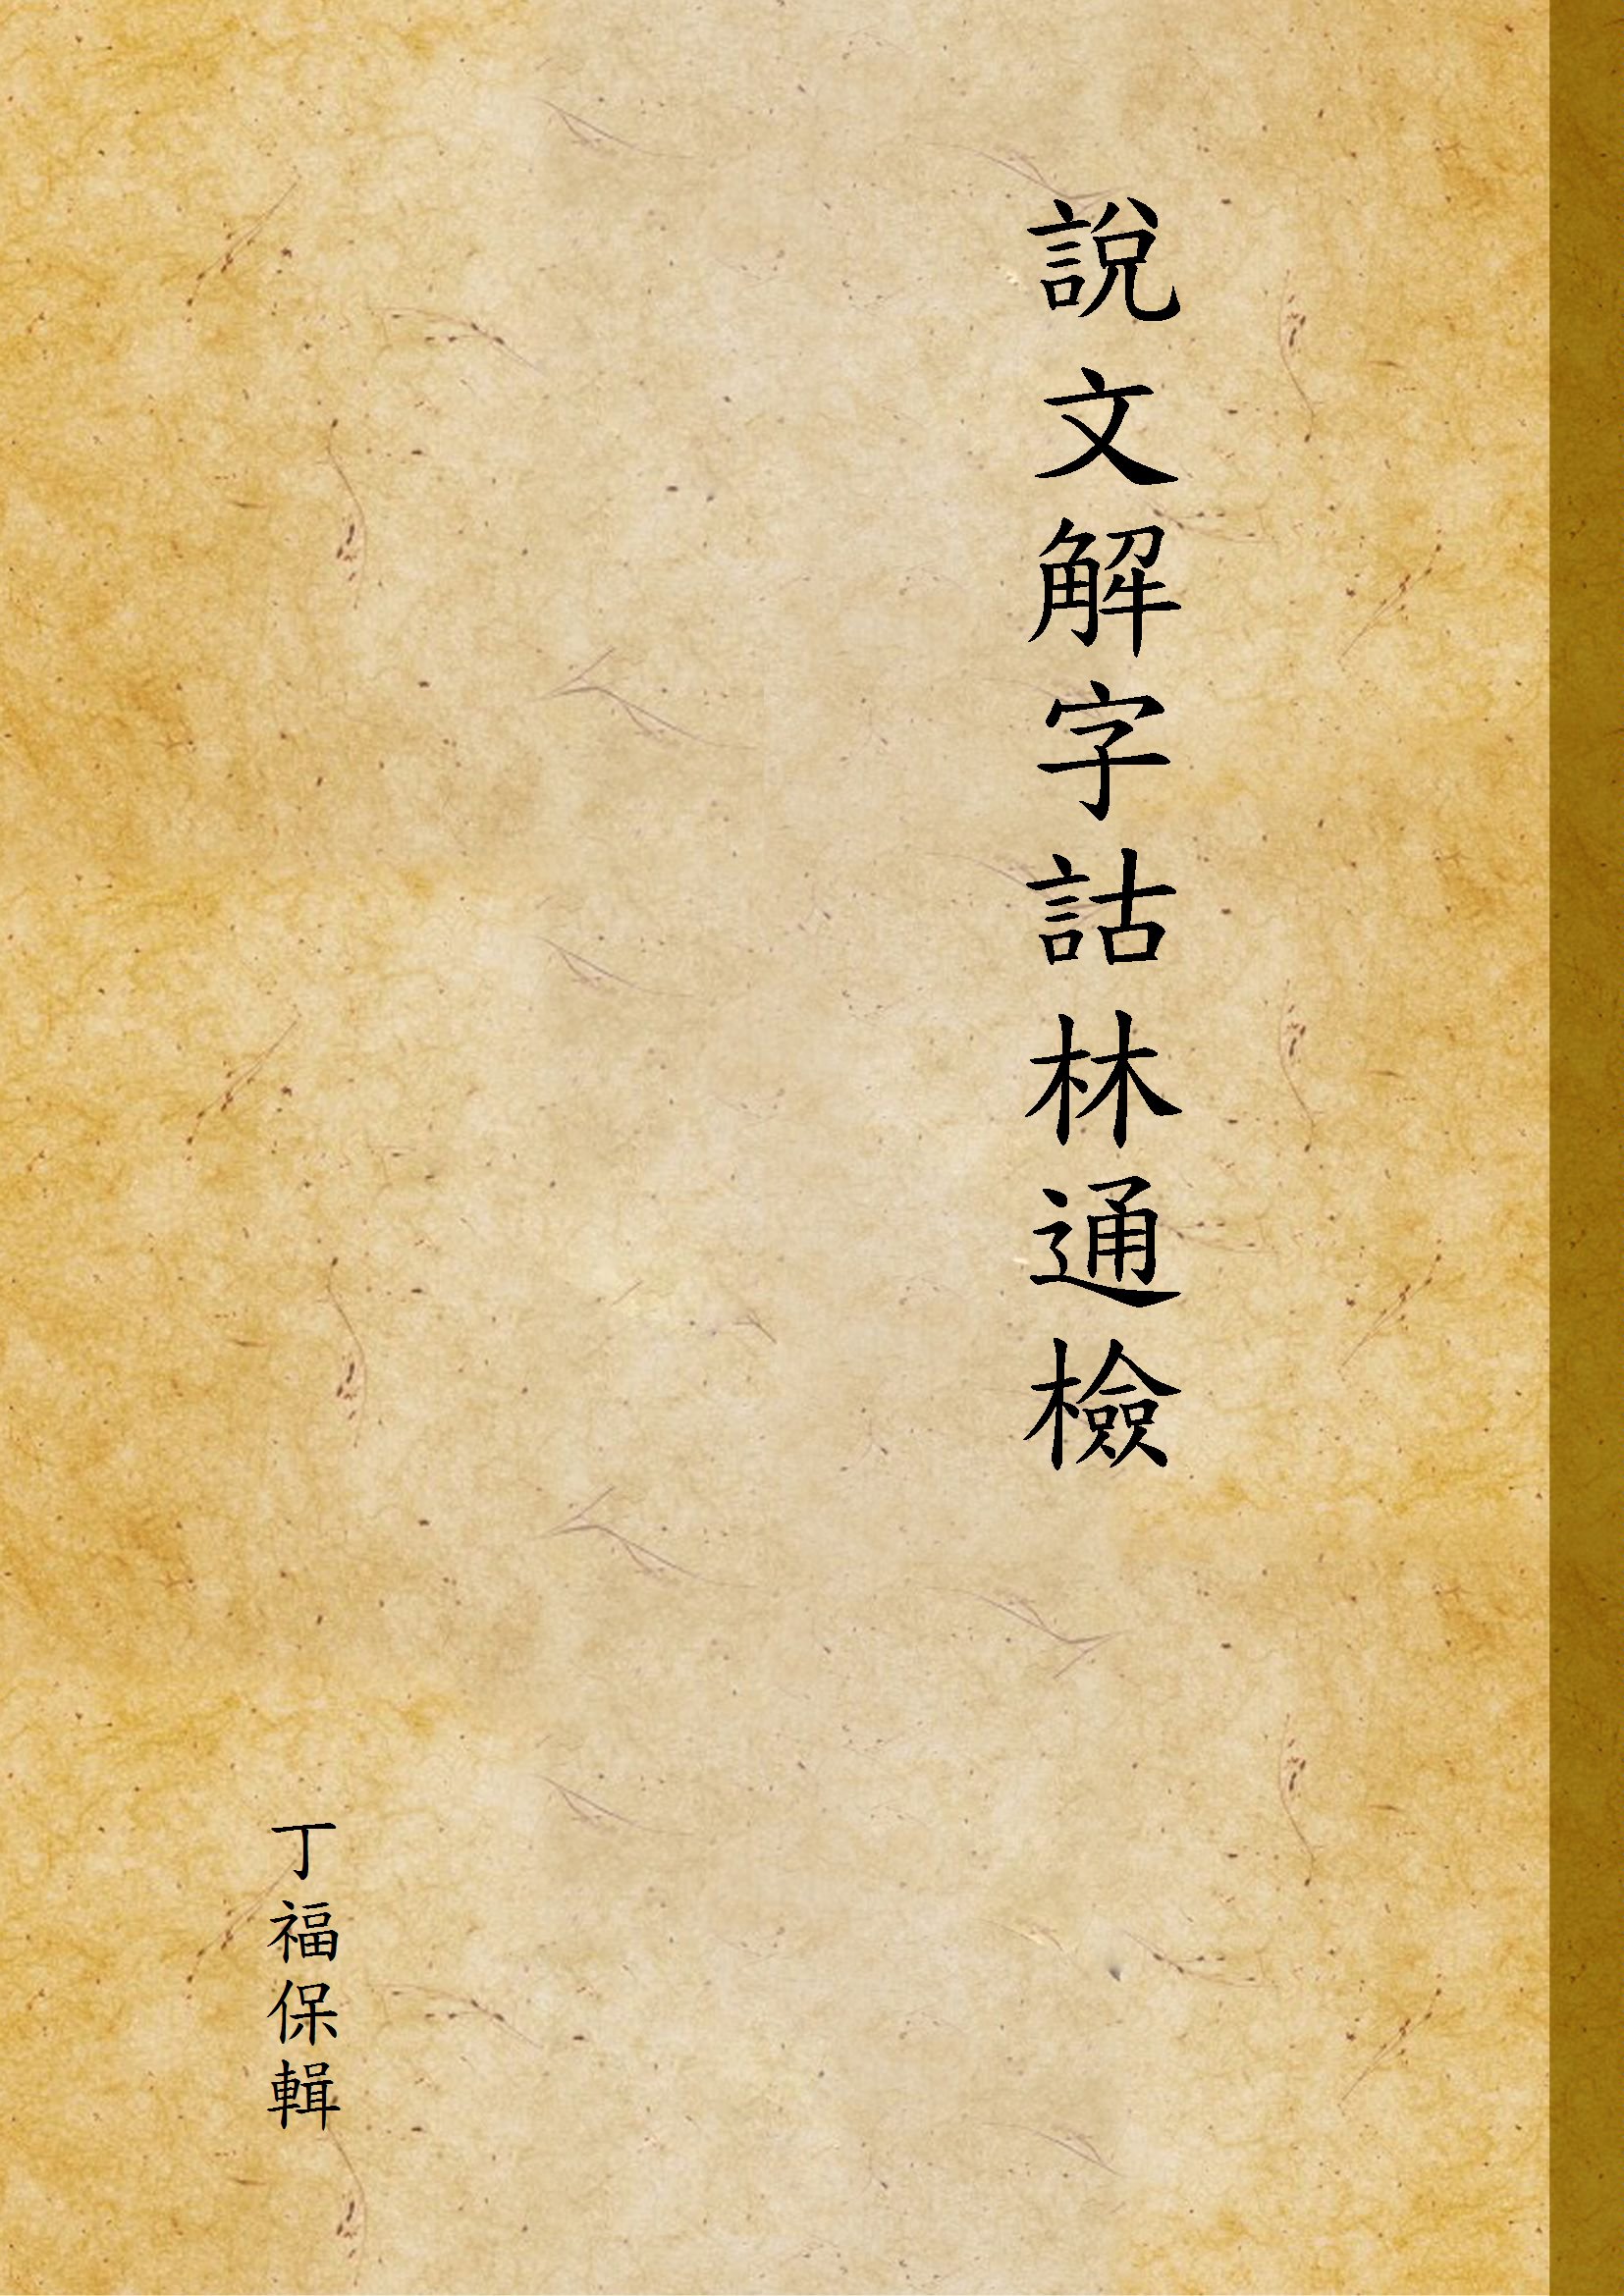 說文解字詁林通檢
丁福保輯